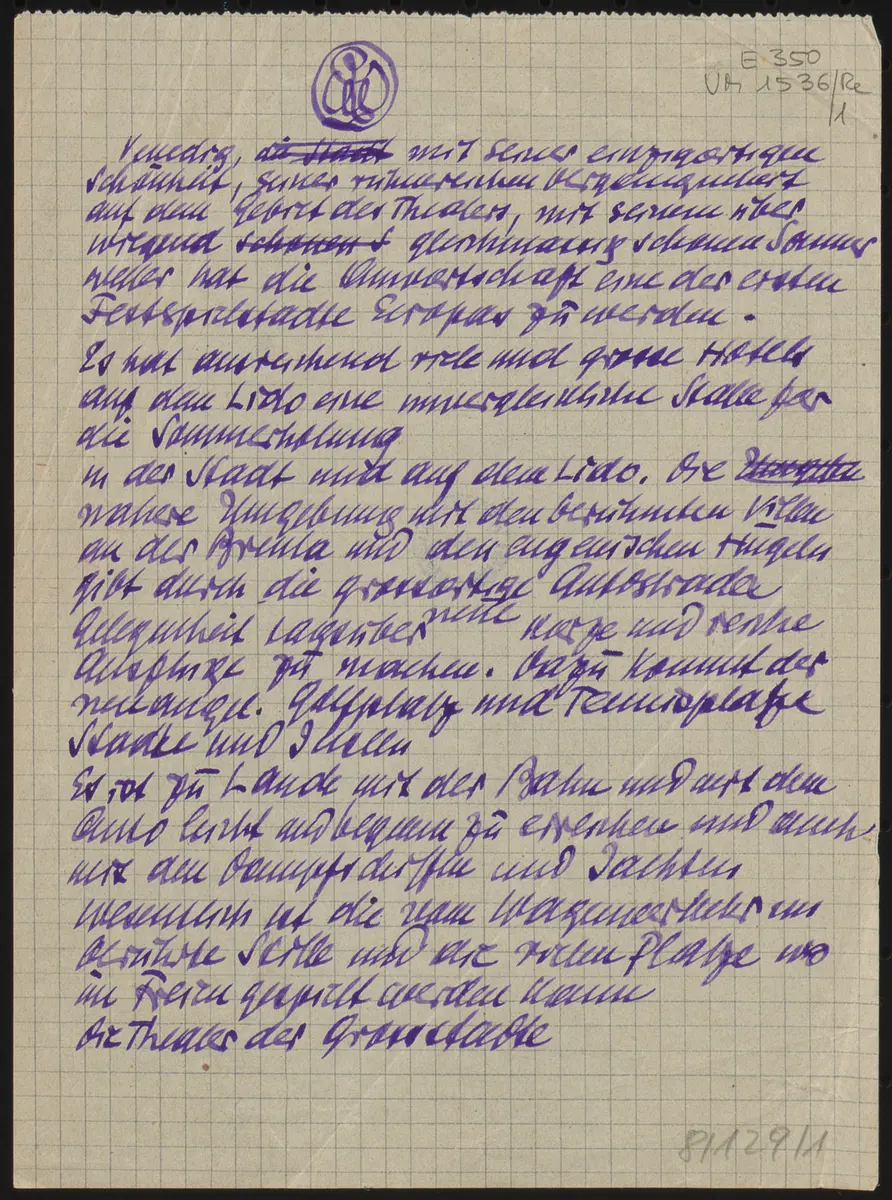 E 350
VM 1536/Re
/1
Venedig, die Stadt mit seiner einzigartigen
Schönheit, seiner ruhmreichen Vergangenheit
auf dem Gebiet des Theaters, mit seinem über
wiegend schönen S gleichmässig schönen Sommer
wetter hat die Anwartschaft eine der ersten
Festspielstädte Europas zu werden.
Es hat ausreichend viele und grosse Hotels
auf dem Lido eine unvergleichliche Stelle für
die Sommerholung
in der Stadt und auf dem Lido. Die
nähere Umgebung mit den berühmten Villen
an der Brenta und den eugeneischen Hügeln
gibt durch die grossartige Autostrada
Gelegenheit tagsüber kurze und reiche
Ausflüge zu machen. Dazu kommt der
neu angel. Golfplatz und Tennisplätze
Städte und Inseln
Es ist zu Lande mit der Bahn und mit dem
Auto leicht und bequem zu erreichen und auch
mit den Dampfschiffen und Jachten
Wesentlich ist die vom Wagenverkehr un
berührte Stille und die vielen Plätze wo
im Freien gespielt werden kann
Die Theater der Grossstädte
8/129/1